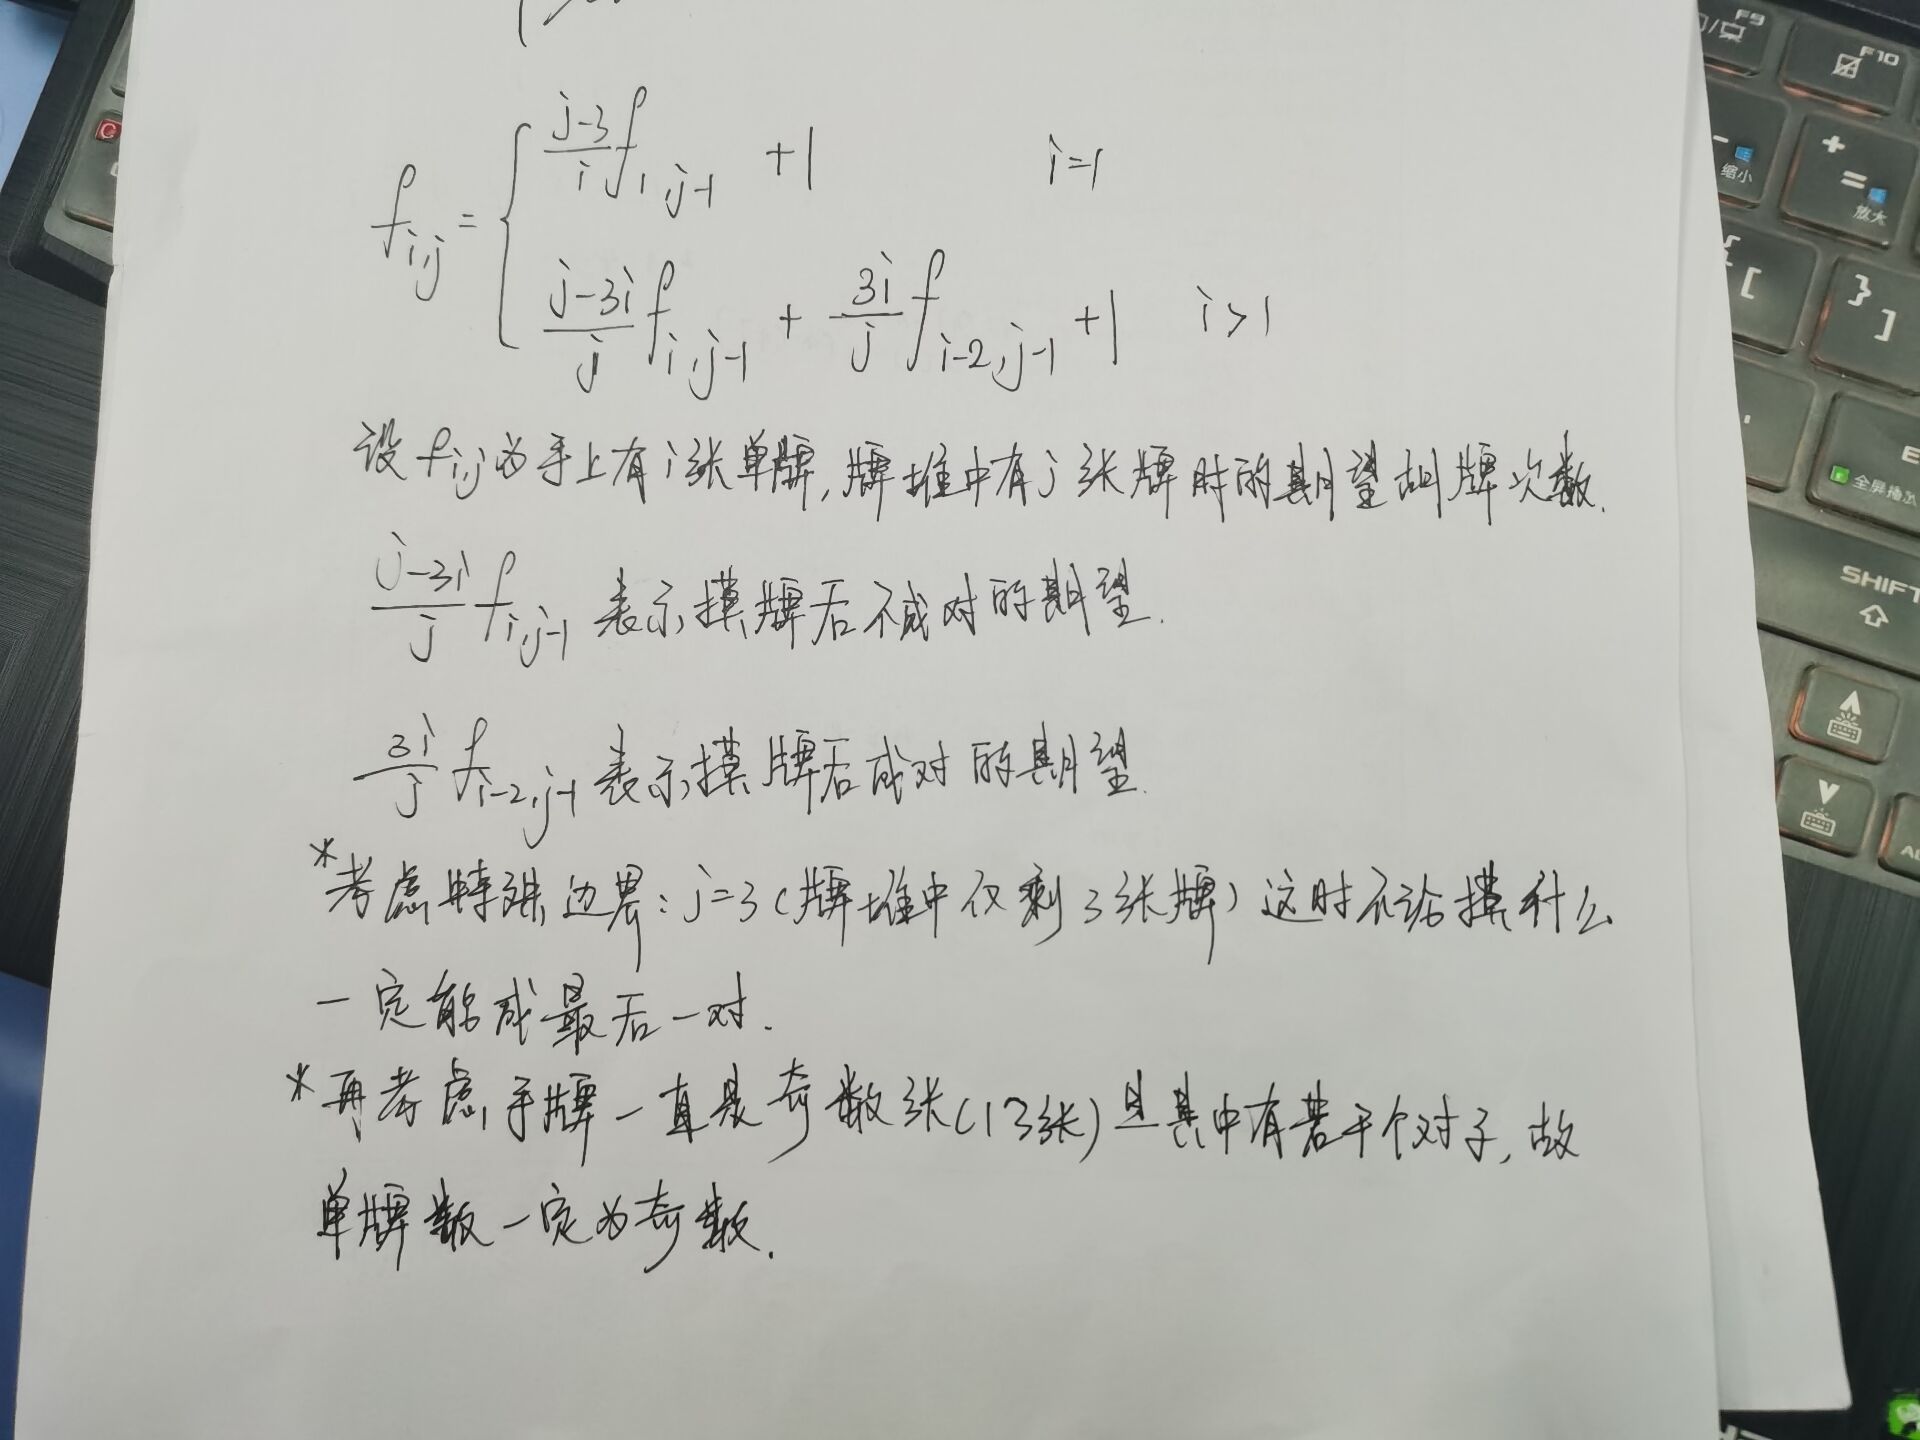 f_{i,j} = { \frac{j-3}{i} f_{1,j-1} +1    i=1
\frac{j-3i}{j} f_{i,j-1} + \frac{3i}{j} f_{i-2,j-1} +1    i>1
设 f_{i,j} 为手上有 i 张单牌,牌堆中有 j 张牌时的期望胡牌次数.
\frac{j-3i}{j} f_{i,j-1} 表示摸牌后不成对的期望.
\frac{3i}{j} f_{i-2,j-1} 表示摸牌后成对的期望.
*考虑特殊边界: j=3 (牌堆中仅剩3张牌) 这时不论摸什么
一定能成最后一对.
*再考虑手牌一直是奇数张(13张)且其中有若干个对子,故
单牌数一定为奇数.
F9
F10
缩小
+
=
放大
{
[
}
]
全屏播放
SHIFT